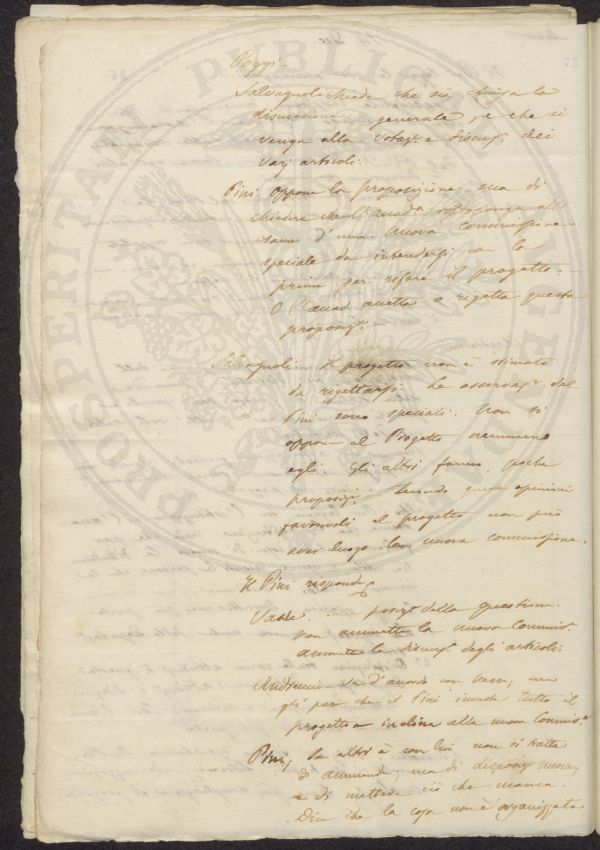 Poggi
Salvagnoli chiede che si chiuga la
discussione generale, e che si
venga alla votaz.e e discuss. dei
varj articoli.
Pini oppone la proposizione, ma di
chiedere che l'Accad.a sottoponga all'
d'una nuova Commissione
speciale da intendersi co la
prima per rifare il progetto.
O l'Accad. accetta o rigetta questa
proposiz.e —
Salvagnoli. Il progetto non è stimato
da rigettarsi. Le osservaz. del
Pini sono speciali. Non si
oppone al Progetto nemmeno
egli. Gli altri fanno poche
proposiz. Essendo quasi opinioni
favorevoli al progetto non può
aver luogo la nuova commissione.
Il Pini risponde
posiz. della questione.
non ammette la nuova Commiss.
ammette la discuss. degli articoli.
Andreucci va d'accordo con ; ma
gli par che il Pini investa tutto il
progetto e inclina alla nuova Commiss.e
Pini, Se altri è con lui non si tratta
di ammend. ma di disposiz. nuove,
e di mettere ciò che manca.
Dice che la cosa non è organizzata
PROSPERITATI PUBLICAE AUGENDAE